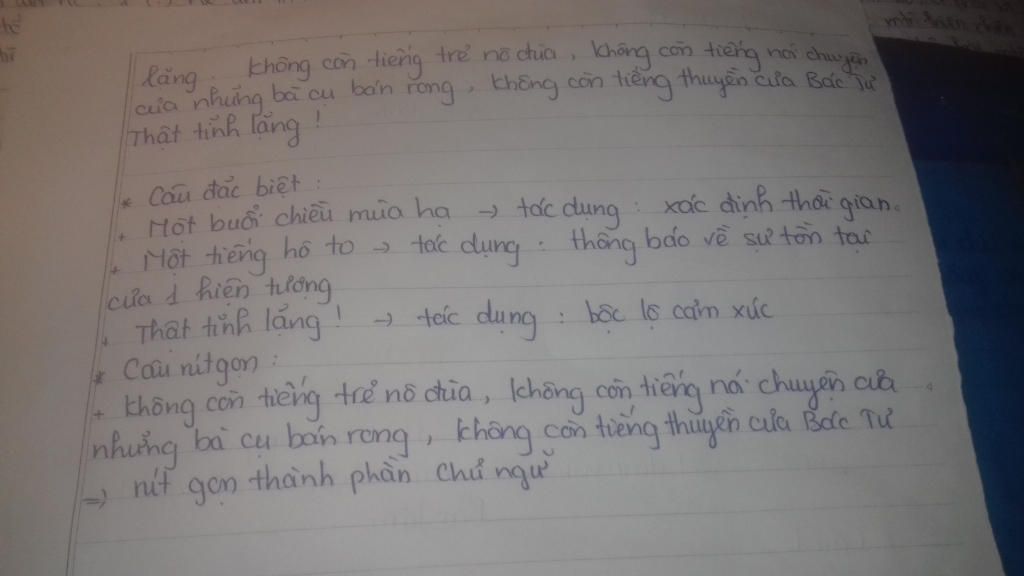 lặng. Không còn tiếng trẻ nô đùa, không còn tiếng nói chuyện
của những bà cụ bán rong, không còn tiếng thuyền của Bác Tư
Thật tĩnh lặng!
* Câu đặc biệt:
+ Một buổi chiều mùa hạ → tác dụng: xác định thời gian.
+ Một tiếng hô to → tác dụng: thông báo về sự tồn tại
của 1 hiện tượng
+ Thật tĩnh lặng! → tác dụng: bộc lộ cảm xúc
* Câu rút gọn:
+ Không còn tiếng trẻ nô đùa, không còn tiếng nói chuyện của
những bà cụ bán rong, không còn tiếng thuyền của Bác Tư
=> rút gọn thành phần chủ ngữ